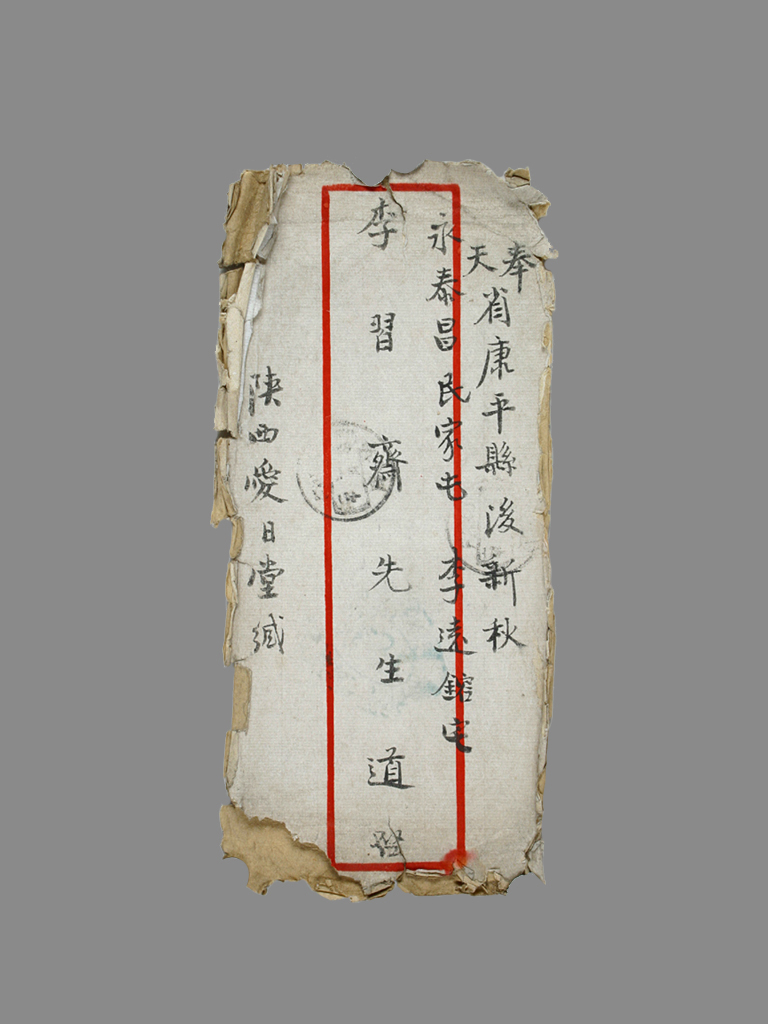 奉天省康平縣後新秋
永泰昌民家屯 李遠鎔宅
李習齋先生道啟
陝西愛日堂緘